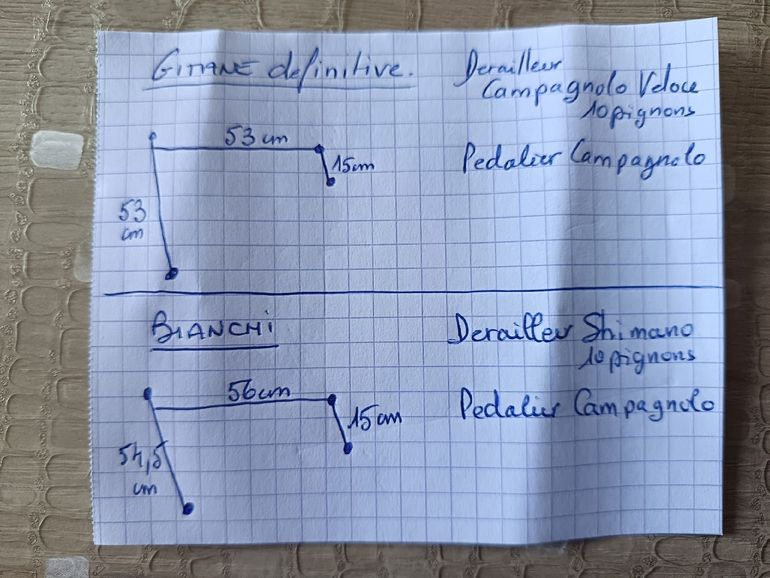 GITANE définitive.
Derailleur
Campagnolo Veloce
10 pignons
53 cm
15cm
Pedalier Campagnolo
53
cm
BIANCHI
Derailleu Shimano
10 pignons
56cm
15cm
Pedalier Campagnolo
54,5
cm